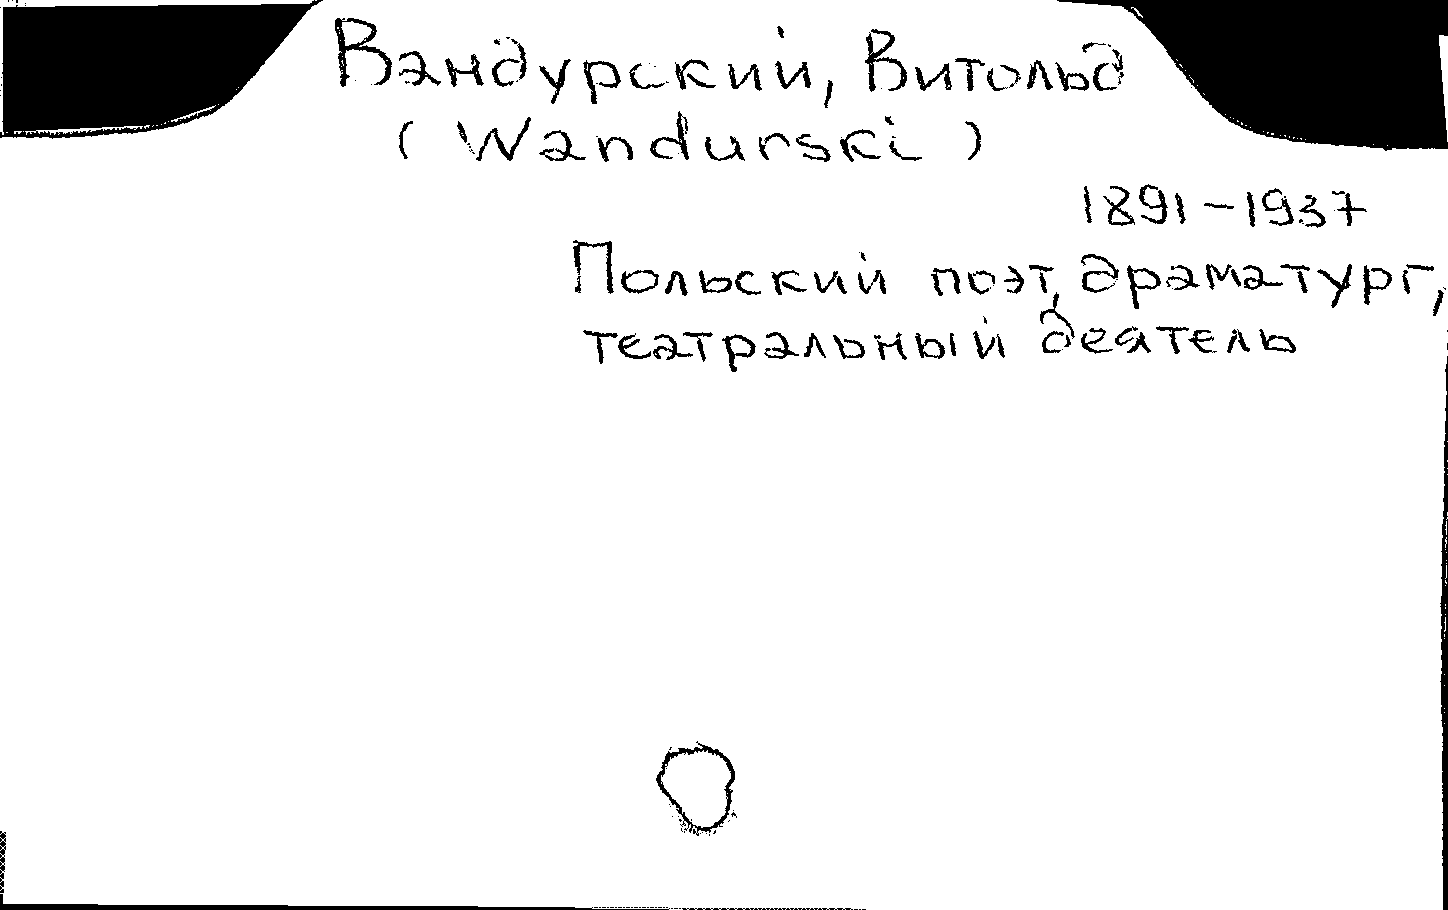 Вандурский, Витольд
(Wandurski)
1891-1937
Польский поэт, драматург,
театральный деятель